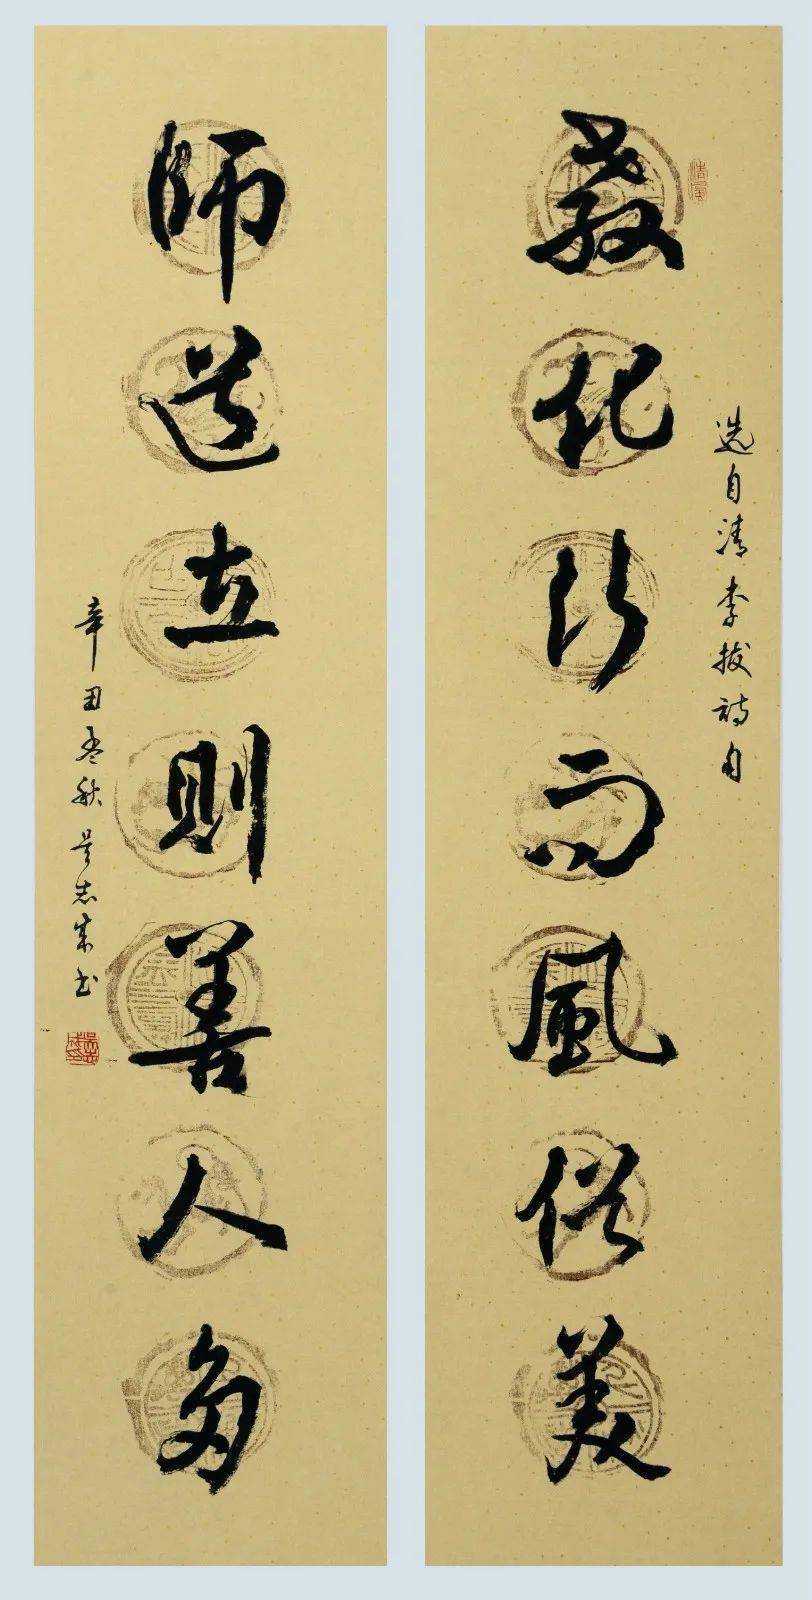 选自清李拔诗句
教化行而風俗美
師道立則善人多
辛丑孟秋吴志成书